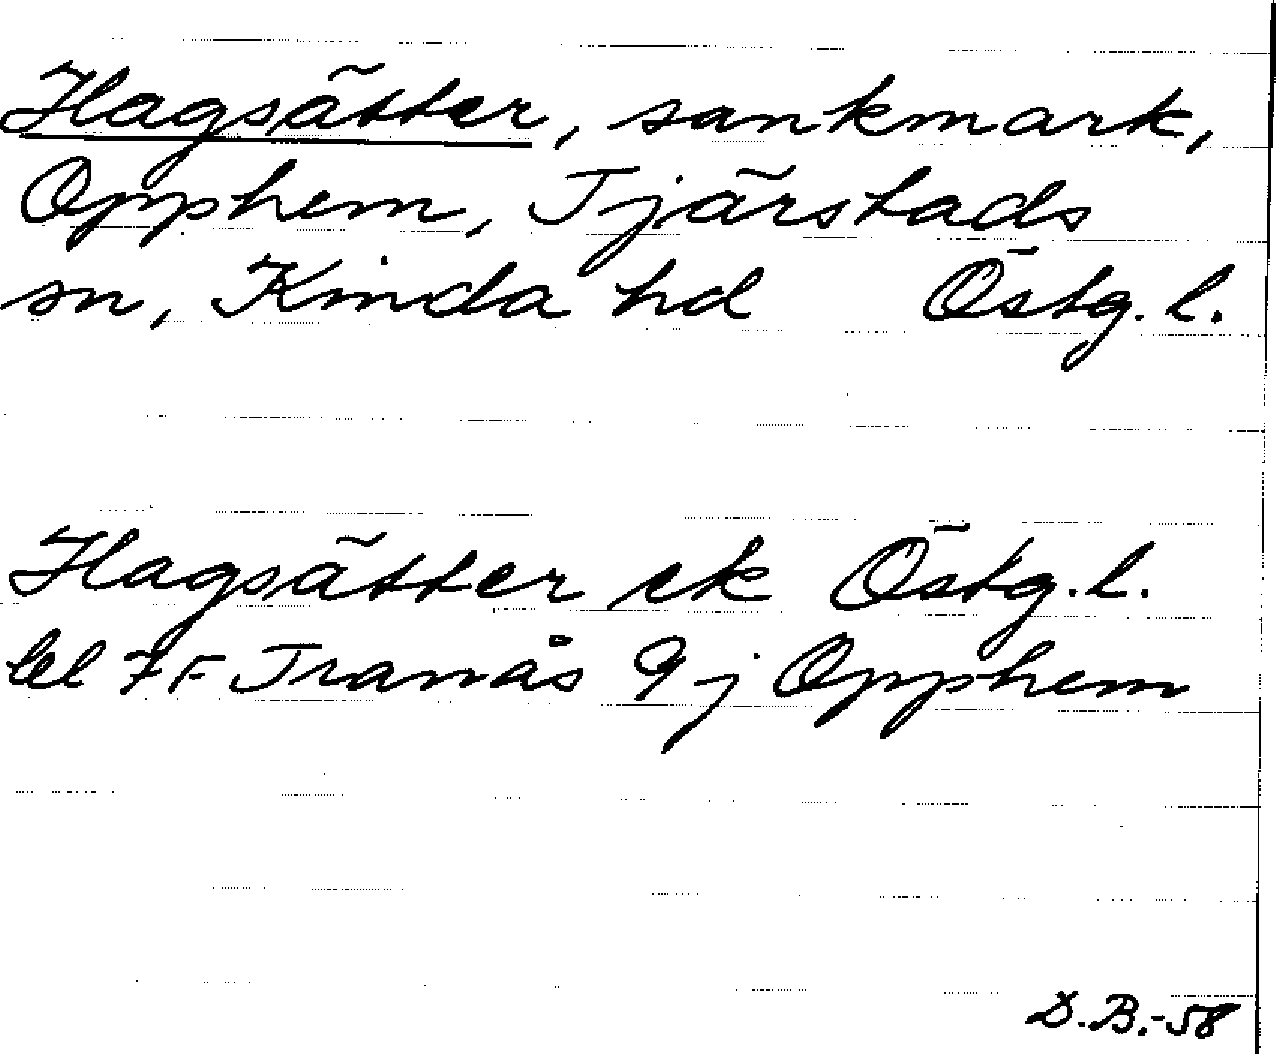 Hagsätter, sankmark,
Opphem, Tjärstads
sn, Kinda hd Östg. l.
Hagsätter ek Östg. l.
bl 7F Tranås 9j Opphem
D.B.-58